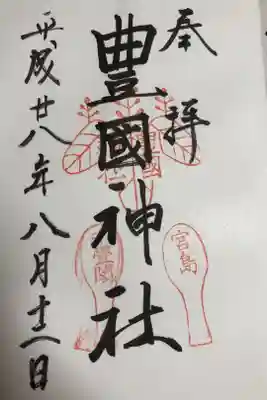 奉拝
豊國神社
平成廿八年八月十二日
宮島